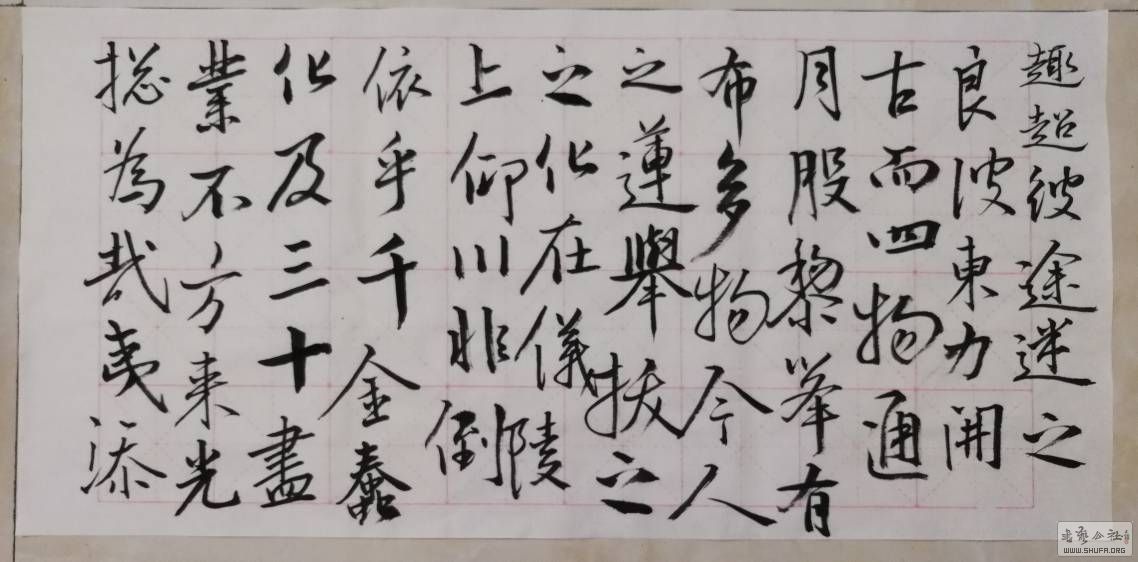 趣超彼途迷之
良波東力開
古而四物通
月股黎峯有
布多物今人
之蓮舉拔之
之化在儀陵
上仰川非倒
依乎千金蠢
化及三十盡
業不方來光
揔為哉夷添
WWW.SHUFA.ORG